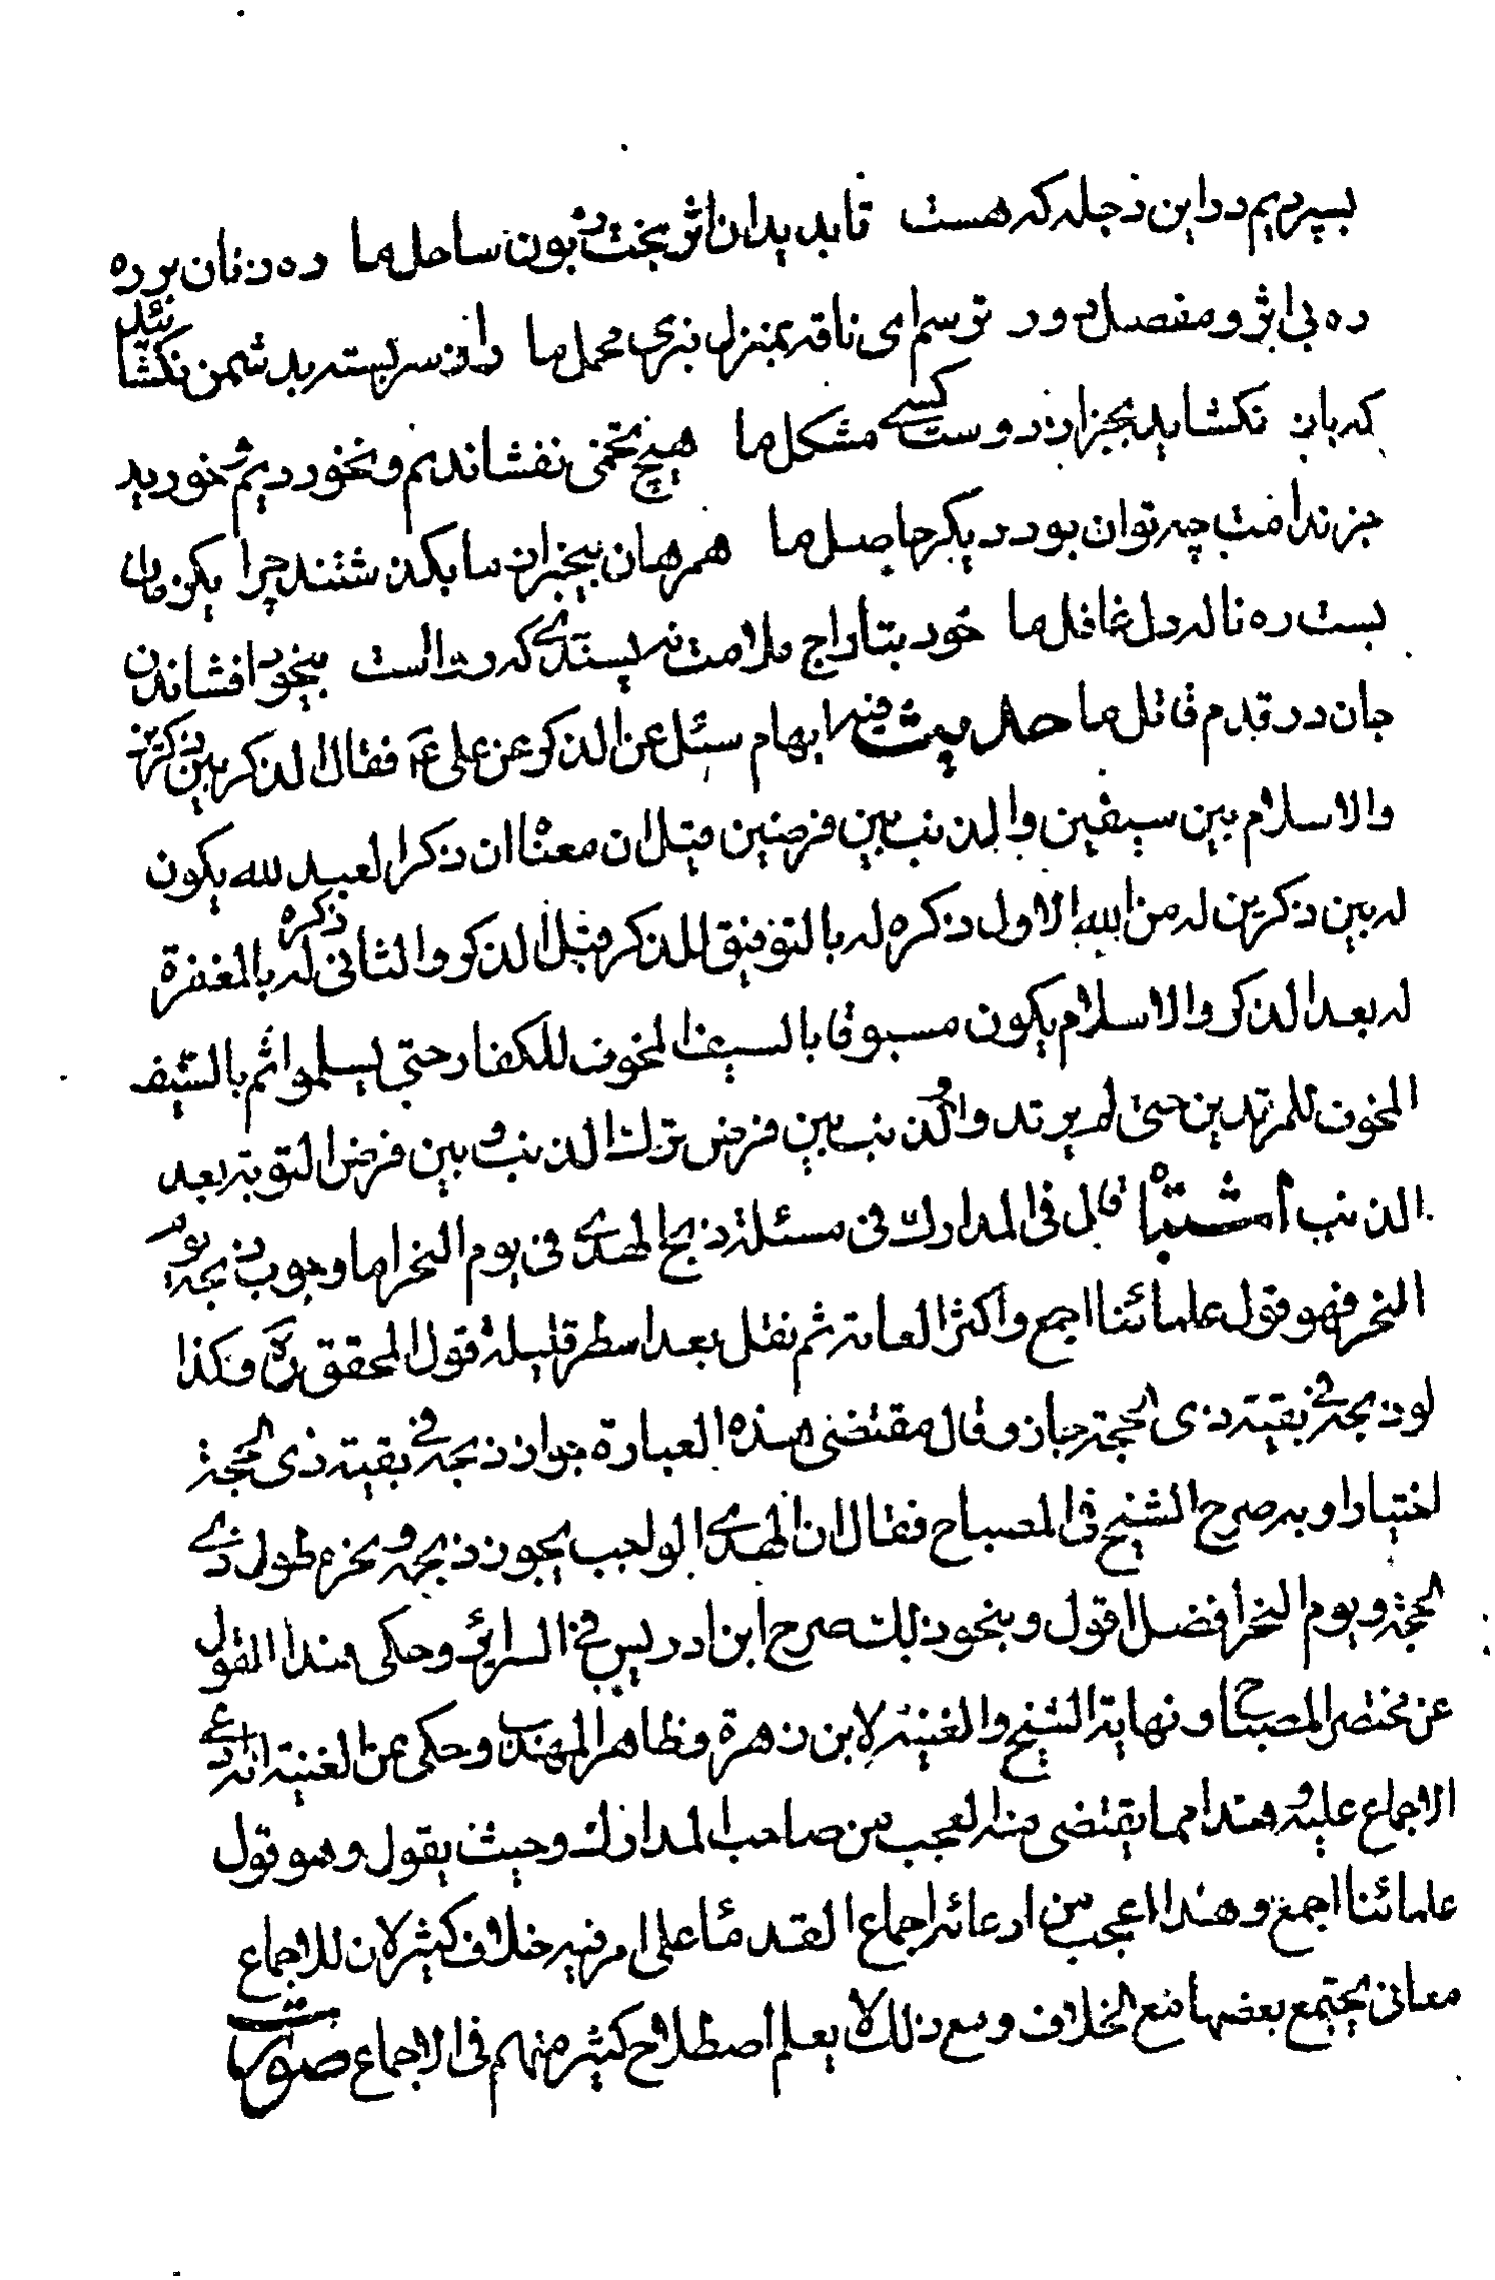 بسپردیم درین دجله که هست تا بدیدان اثر بخت زبون ساحل ما ره زنان بر ره
ره بی اثر و مقصد دور ترسم ای ناقه بمنزل نبری محمل ما راز سربسته بدشمن نگشائید
که باز نگشاید بجز از دوست کسی مشکل ما هیچ تخمی نفشاندیم و نخوردیم ثمر خورید
جز ندامت چه توان بود دیگر حاصل ما همرهان بیخبر از ما بگذشتند چرا یکزمان
بست ره ناله دل غافل ما خود بتاراج ملامت نپسندی که رواست بیخود افشاندن
جان در قدم قاتل ما حدیث فیه ابهام سئل عن الذکر عن علی ع فقال الذکر بین ذکرین
والاسلام بین سیفین والذنب بین فرضین قیل ان معناه ان ذکر العبد لله یکون
له بین ذکرین له من الله الاول ذکره له بالتوفیق للذکر قبل الذکر والثانی ذکره له بالمغفرة
له بعد الذکر والاسلام یکون مسبوقا بالسیف المخوف للکفار حتی یسلموا ثم بالسیف
المخوف للمرتدین حتی لم یرتد والذنب بین فرض ترک الذنب و بین فرض التوبة بعد
الذنب اشتباه قال فی المدارک فی مسئلة ذبح الهدی فی یوم النحر اما وجوب ذبحه یوم
النحر فهو قول علمائنا اجمع واکثر العامة ثم نقل بعد اسطر قلیلة قول المحقق ره وکذا
لو ذبحه فی بقیة ذی الحجة جاز وقال مقتضی هذه العبارة جواز ذبحه فی بقیة ذی الحجة
اختیارا وبه صرح الشیخ فی المصباح فقال ان الهدی الواجب یجوز ذبحه ونحره طول ذی
الحجة و یوم النحر افضل اقول وبنحو ذلک صرح ابن ادریس فی السرائر وحکی هذا القول
عن مختصر المصباح ونهایة الشیخ والغنیة لابن زهرة وظاهر المهذب وحکی عن الغنیة انه ادعی
الاجماع علیه وهذا مما یقتضی منه العجب من صاحب المدارک وحیث یقول وهو قول
علمائنا اجمع وهذا اعجب من ادعائه اجماع القدماء علی امر فیه خلاف کثیر لان للاجماع
معانی یجتمع بعضها مع الخلاف ومع ذلک لا یعلم اصطلاح کثیر منهم فی الاجماع صورت